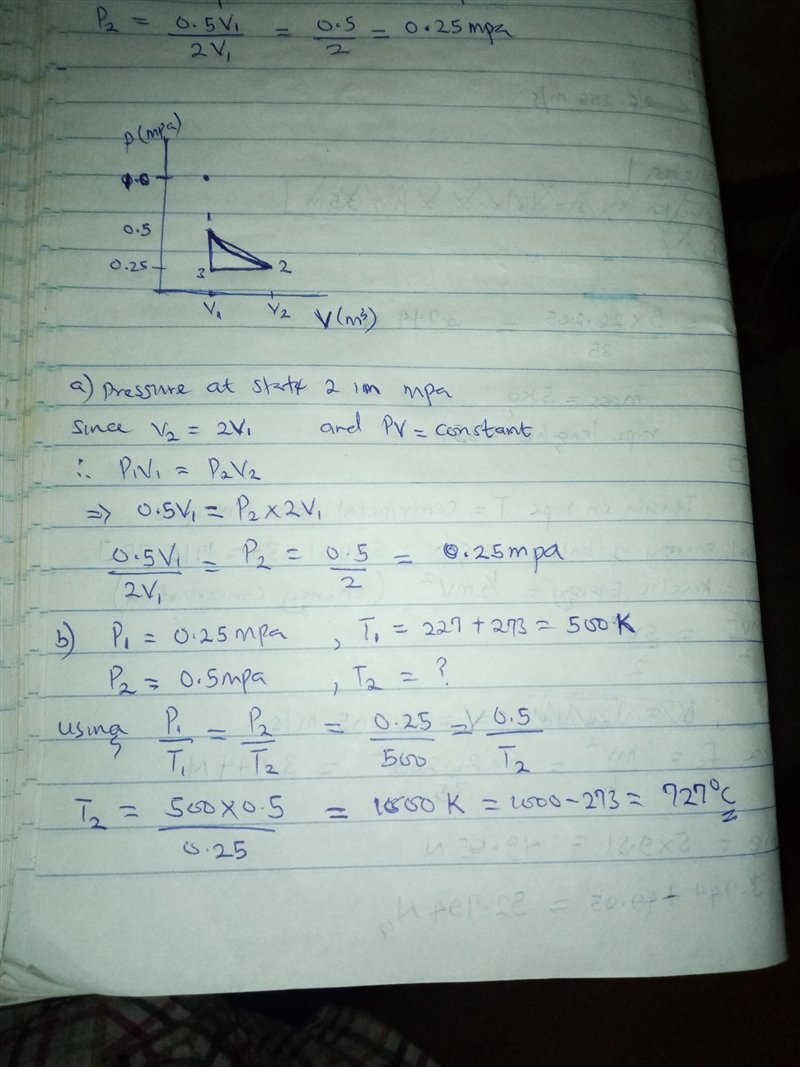 P₂ = 0.5V₁/2V₁ = 0.5/2 = 0.25mpa
P(mpa)
0.5
1
0.25
3
2
V₁ V₂ V(m³)
a) Pressure at state 2 in mpa
since V₂ = 2V₁ and PV = constant
∴ P₁V₁ = P₂V₂
⇒ 0.5V₁ = P₂ × 2V₁
0.5V₁/2V₁ = P₂ = 0.5/2 = 0.25mpa
b) P₁ = 0.25mpa , T₁ = 227 + 273 = 500K
P₂ = 0.5mpa , T₂ = ?
using P₁/T₁ = P₂/T₂ = 0.25/500 = 0.5/T₂
T₂ = 500×0.5/0.25 = 1000K = 1000 - 273 = 727°C